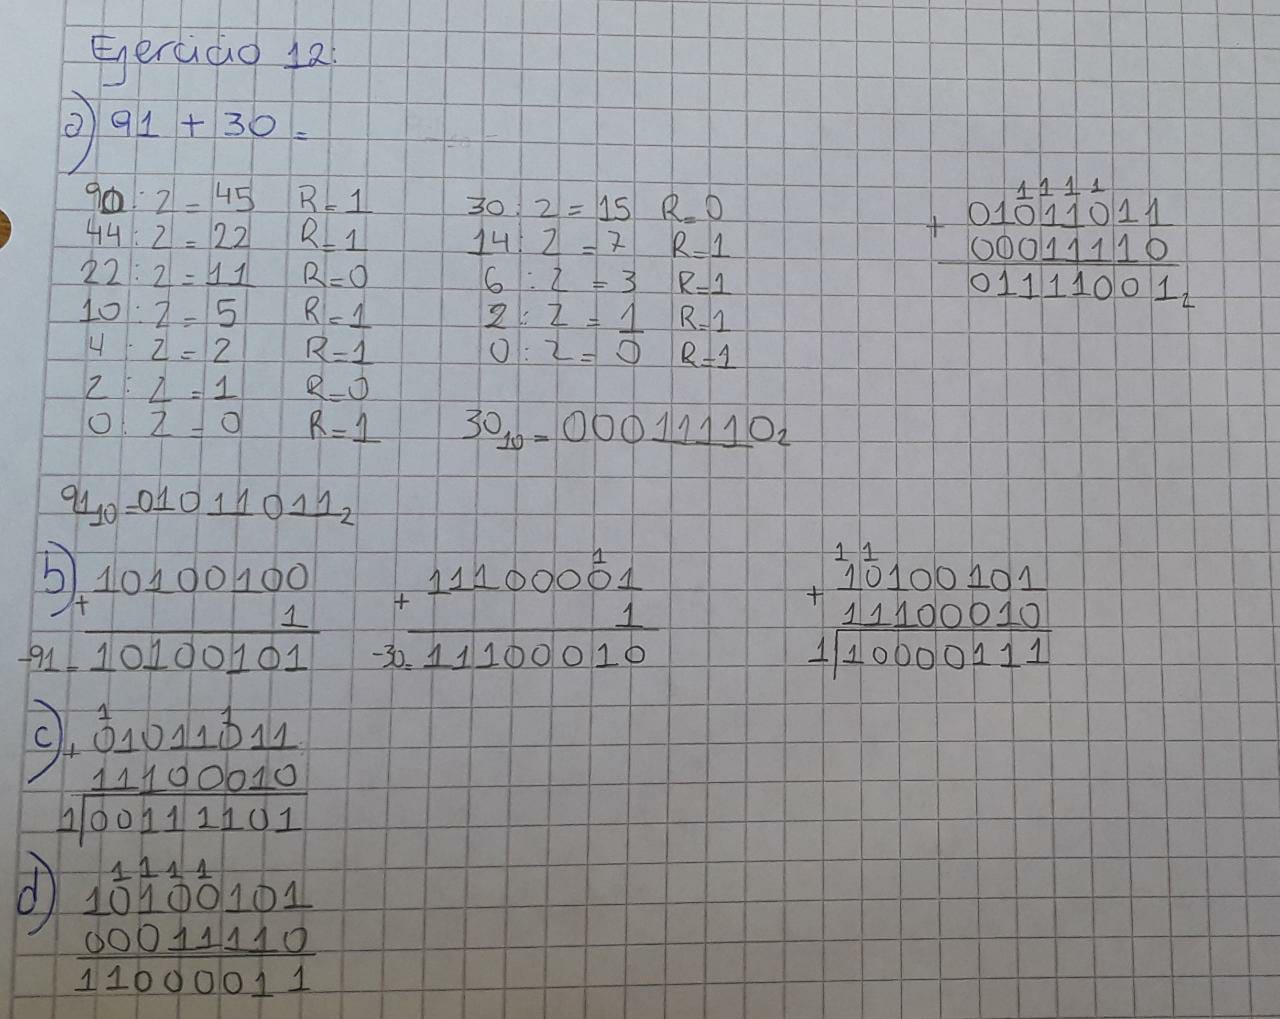 Ejercicio 12:
a) 91 + 30 =
90 : 2 = 45 R=1
44 : 2 = 22 R=1
22 : 2 = 11 R=0
10 : 2 = 5 R=1
4 : 2 = 2 R=1
2 : 2 = 1 R=0
0 : 2 = 0 R=1
91₁₀=01011011₂
30 : 2 = 15 R=0
14 : 2 = 7 R=1
6 : 2 = 3 R=1
2 : 2 = 1 R=1
0 : 2 = 0 R=1
30₁₀=00011110₂
1 1 1 1
+ 01011011
00011110
01111001₂
b) + 10100100
1
-91=10100101
1
+ 11100001
1
-30=11100010
1 1
+ 10100101
11100010
1|10000111
c) 1 1
+ 01011011
11100010
1|00111101
d) 1 1 1 1
10100101
00011110
11000011